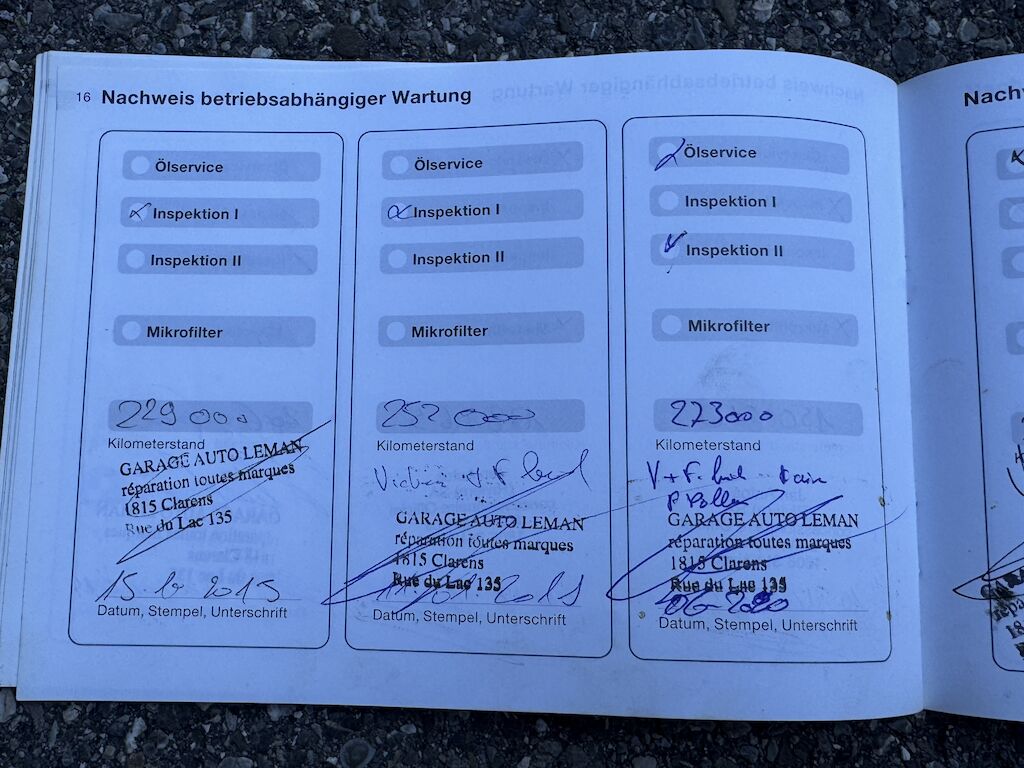 16 Nachweis betriebsabhängiger Wartung
Ölservice
Inspektion I
Inspektion II
Mikrofilter
229 000
Kilometerstand
GARAGE AUTO LEMAN
réparation toutes marques
1815 Clarens
Rue du Lac 135
2015
Datum, Stempel, Unterschrift
Ölservice
Inspektion I
Inspektion II
Mikrofilter
252 000
Kilometerstand
GARAGE AUTO LEMAN
réparation toutes marques
1815 Clarens
Rue du Lac 135
Datum, Stempel, Unterschrift
Ölservice
Inspektion I
Inspektion II
Mikrofilter
273000
Kilometerstand
GARAGE AUTO LEMAN
réparation toutes marques
1815 Clarens
Rue du Lac 135
Datum, Stempel, Unterschrift
Nach